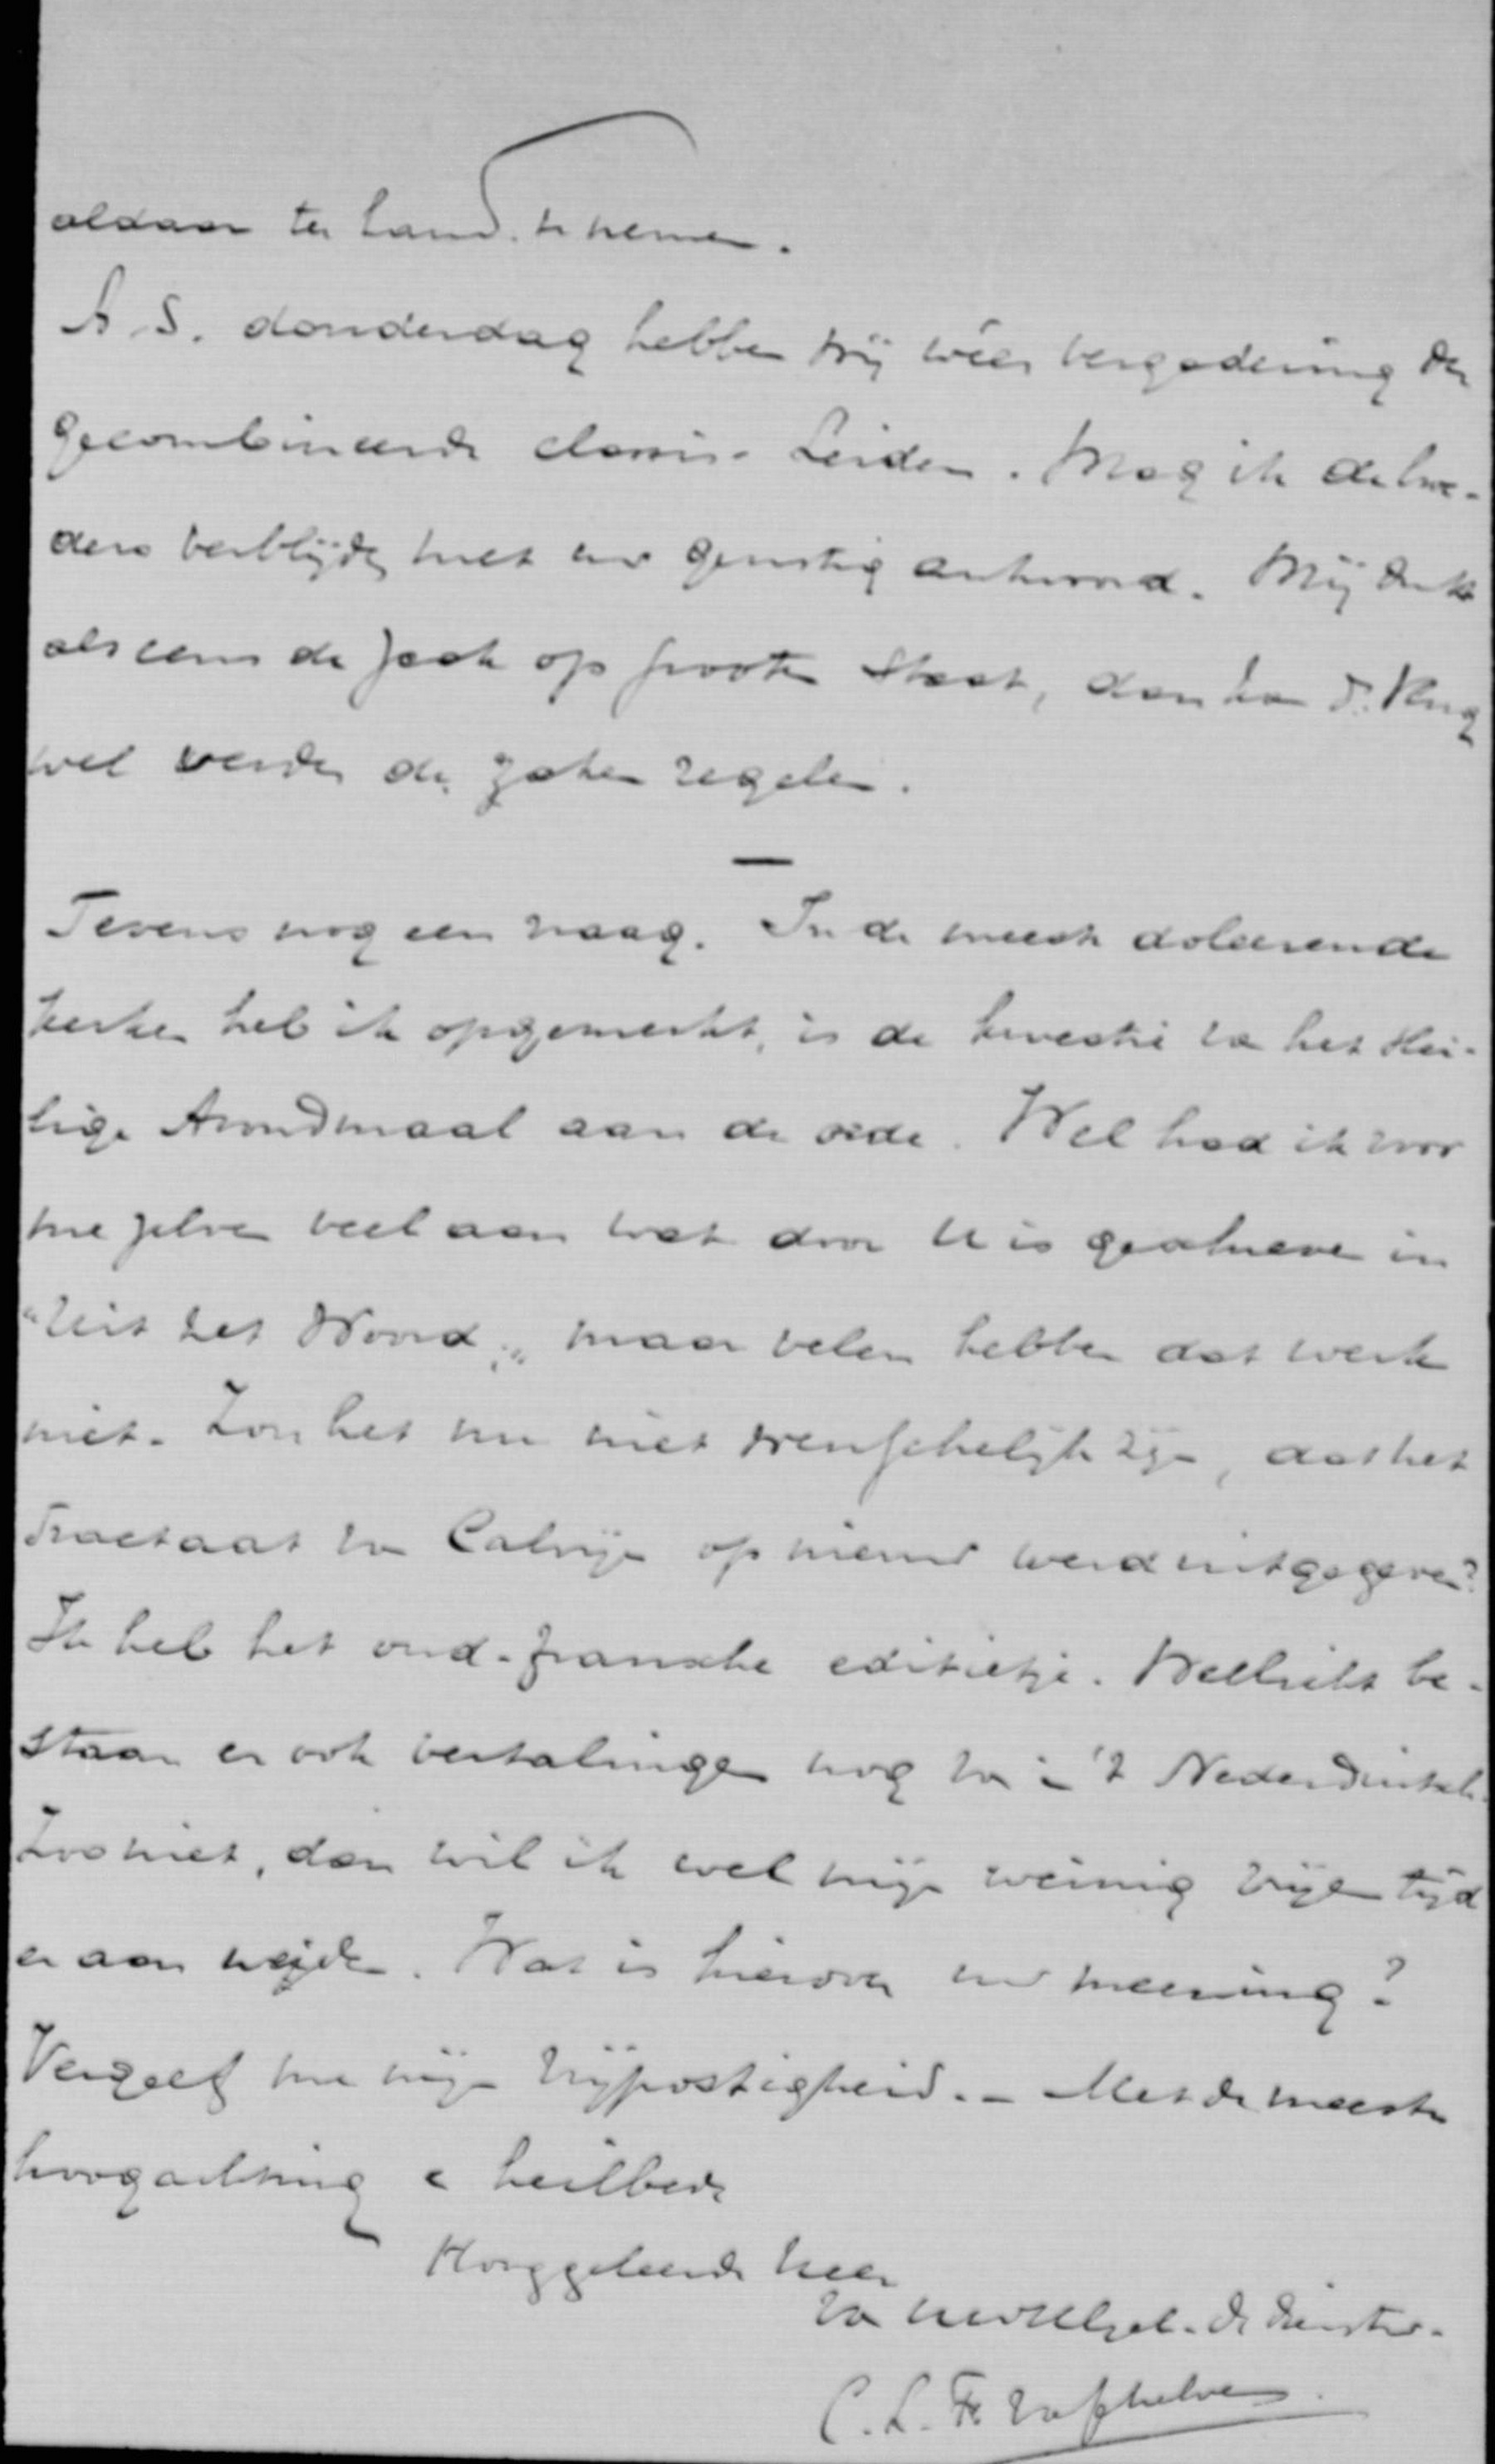 aldaar ter hand te nemen.
A.S. donderdag hebben wij wéér vergadering der
gecombineerde classis Leiden. Mag ik de broe-
ders verblijden met uw gunstig antwoord. Mij dunkt
als eens de zaak op pooten staat, dan kan Ds. Klug
wel verder de zaken regelen.
—
Tevens nog een vraag. In de meeste doleerende
kerken heb ik opgemerkt, is de kwestie van het Hei-
lige Avondmaal aan de orde. Wel had ik voor
me zelven veel aan wat door U is geschreven in
"Uit het Woord," maar velen hebben dat werk
niet. Zou het nu niet wenschelijk zijn, dat het
Tractaat van Calvijn op nieuw werd uitgegeven?
Ik heb het oud-fransche editietje. Wellicht be-
staan er ook vertalingen nog van in 't Nederduitsch.
Zoo niet, dan wil ik wel mijn weinig vrijen tijd
er aan wijden. Wat is hierover uw meening?
Vergeef me mijn vrijpostigheid. - Met de meeste
hoogachting en heilbede
Hooggeleerde heer
van uw WelEd. de dienstw.
C. L. F. van Schelven